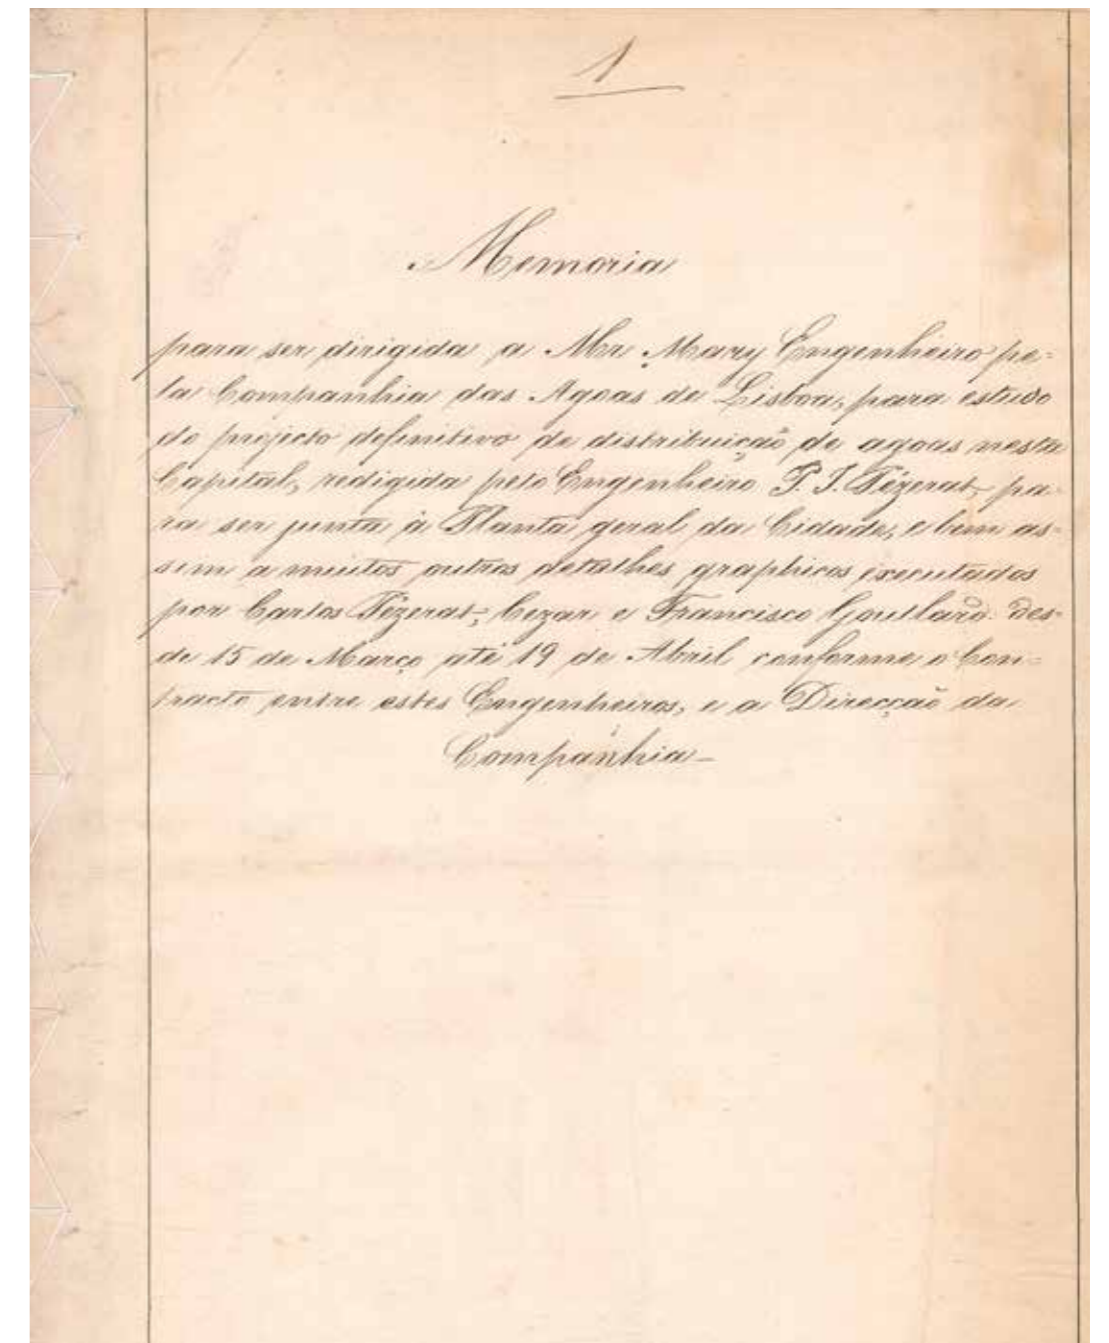 1
Memoria
para ser dirigida a Mr. Mary Engenheiro pe-
la Companhia das Agoas de Lisboa, para estudo
do projecto definitivo de distribuição de agoas nesta
Capital, redigida pelo Engenheiro P. J. Pézerat, pa-
ra ser junta à Planta geral da Cidade, e bem as-
sim a muitos outros detalhes graphicos executados
por Carlos Pézerat, Cezar e Francisco Goullard des-
de 15 de Março até 19 de Abril conforme o Con-
tracto entre estes Engenheiros, e a Direcção da
Companhia-